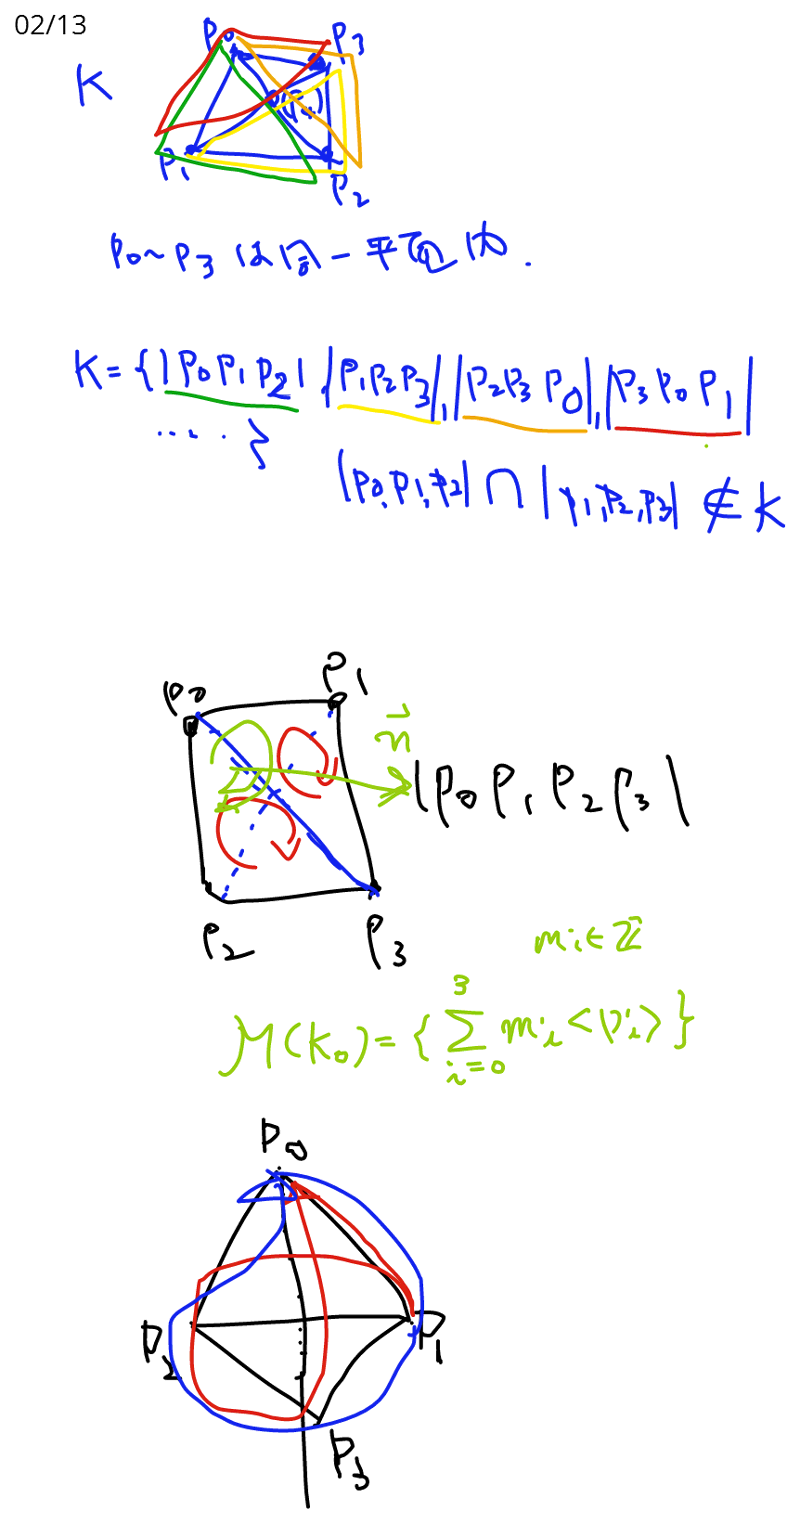 02/13
P0 P3
K
P1
P2
P0~P3 は同一平面内.
K={|P0P1P2| |P1P2P3|,|P2P3P0|,|P3P0P1|
.....}
|P0,P1,P2|∩|P1,P2,P3|∉K
P0 P1
n⃗
|P0P1P2P3|
P2 P3
mi∈ℤ
M(K0)={∑_{i=0}^{3} mi<Pi>}
P0
P2 P1
P3